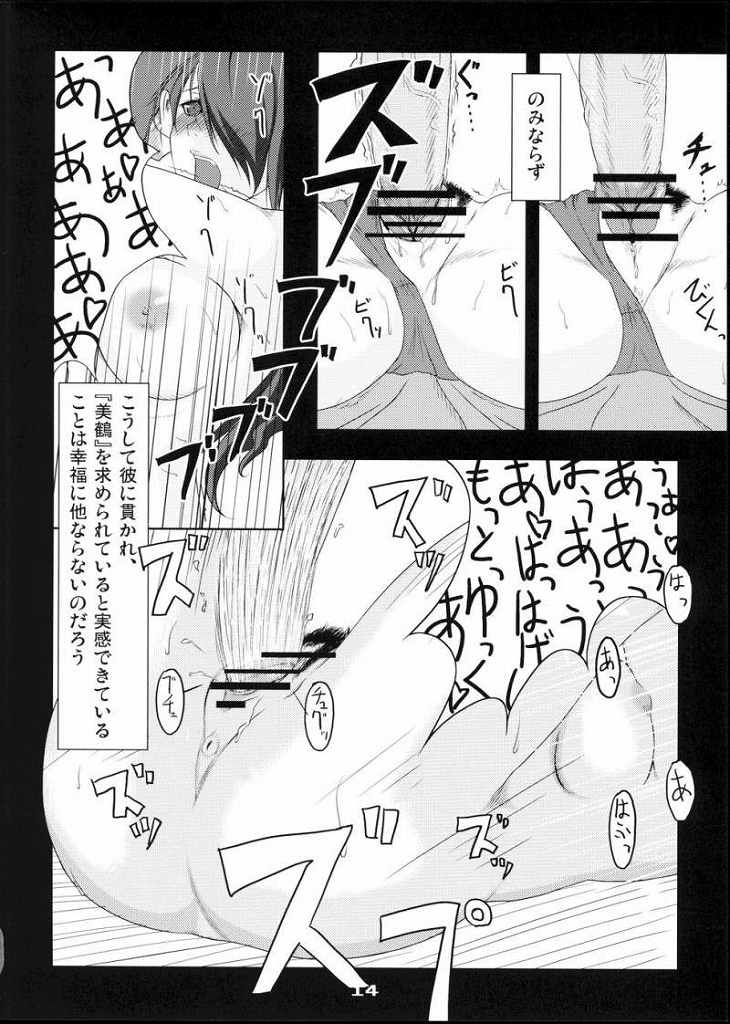 チュ…
びくんっ
のみならず
ぐっ…
ビク
ビクッ
ズブ
ズブブブ
ゾク
ゾク
あっあぁ♡あぁ
ああああああ♡あ
こうして彼に貫かれ、
『美鶴』を求められていると実感できている
ことは幸福に他ならないのだろう
ズッ
ズッ
ズッ
ズッ
ズプ
ブチュ
チュグッ
もっとゆっく
はっ
あっ
あ
はぁっ
14